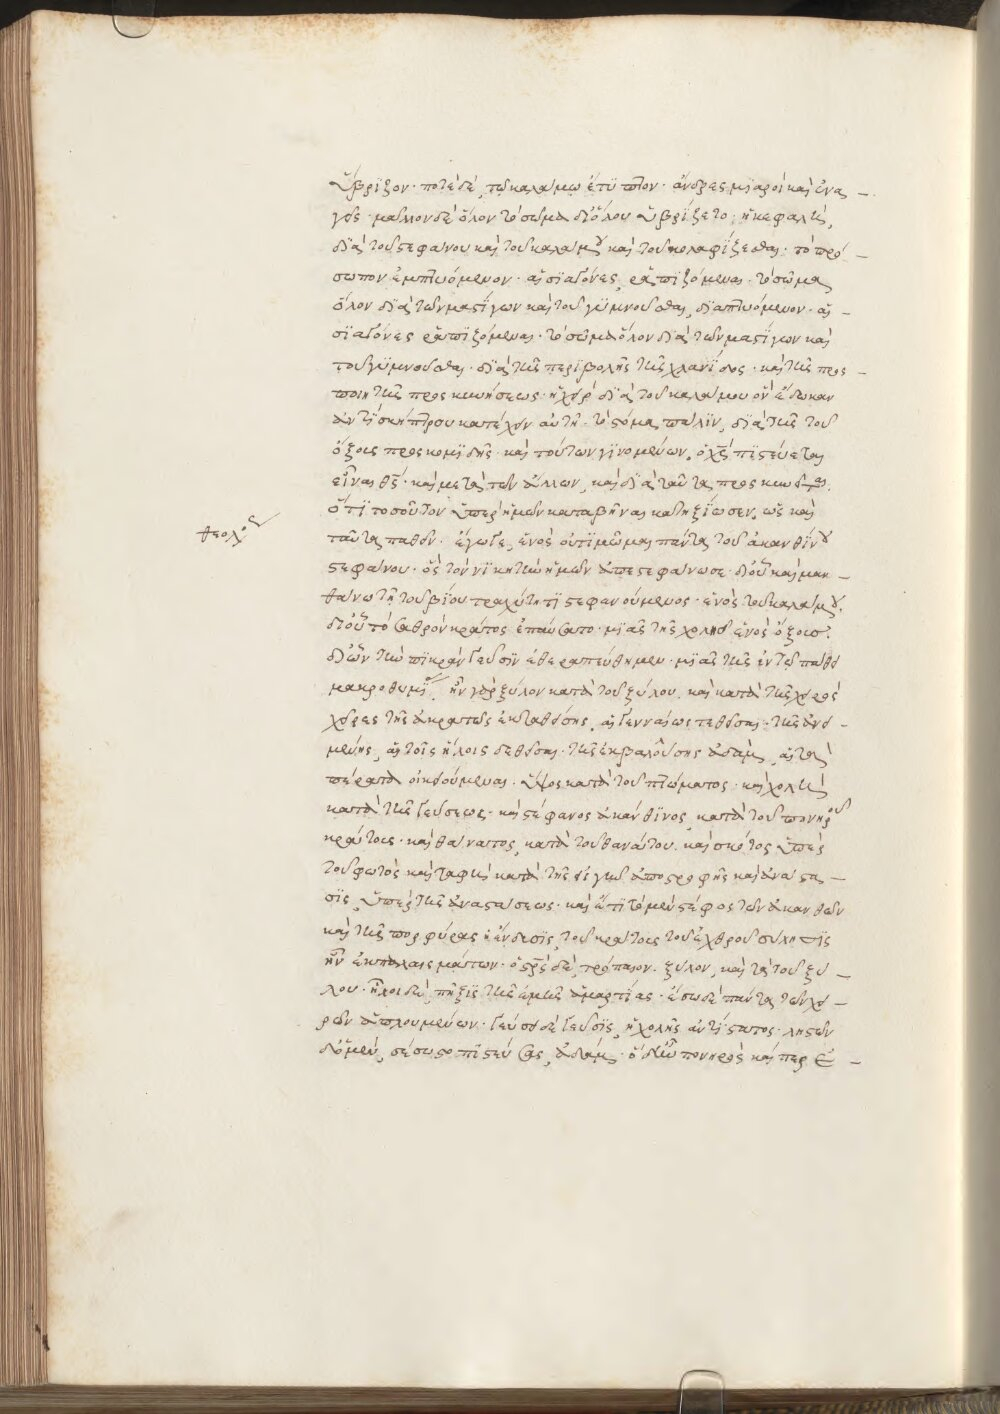 ὕβριζον · ποτὲ δὲ, τῷ καλάμῳ ἔτυπτον · ἄνδρες μιαροὶ καὶ ἐνα
γεῖς · μᾶλλον δὲ ὅλον τὸ σῶμα δι' ὅλου ὑβρίζετο · ἡ κεφαλὴ,
διὰ τοῦ στεφάνου καὶ τοῦ καλάμου καὶ τοῦ κολαφίζεσθαι · τὸ πρό
σωπον ἐμπτυόμενον · αἱ σιαγόνες, ῥαπιζόμεναι · τὸ σῶμα,
ὅλον διὰ τῶν μαστίγων καὶ τοῦ γυμνοῦσθαι, διαπτυόμενον · αἱ
σιαγόνες ῥαπιζόμεναι · τὸ σῶμα ὅλον διὰ τῶν μαστίγων καὶ
τοῦ γυμνοῦσθαι · διὰ τῆς περιβολῆς τῆς χλανίδος · καὶ τῆς προσ
ποιητῆς προσκυνήσεως · ἡ χεὶρ διὰ τοῦ καλάμου ὃν ἔδωκαν
ἀντὶ σκήπτρου κατέχειν αὐτῇ · τὸ στόμα πάλιν, διὰ τῆς τοῦ
ὄξους προσκομιδῆς · καὶ τούτων γινομένων, ὁ χς πιστεύεται
εἶναι θς · καὶ μετὰ τῶν ἄλλων, καὶ διὰ ταῦτα προσκυνεῖται.
ὅτι τοσοῦτον ὑπὲρ ἡμῶν καταβῆναι κατηξίωσεν, ὡς καὶ
ταῦτα παθεῖν · ἔγωγε, ἑνὸς οὐ τιμῶμαι πάντα τοῦ ἀκανθίνου
θεολόγ
στεφάνου · ὃς τὸν νικητὴν ἡμῶν ἀπεστεφάνωσε · δι' οὗ καὶ μαν
θάνω τῇ τοῦ βίου τραχύτητι στεφανούμενος · ἑνὸς τοῦ καλάμου,
δι' οὗ τὸ σαθρὸν κράτος ἐπαύσατο · μιᾶς τῆς χολῆς ἑνὸς ὄξους
δι' ὧν τὴν πικρὰν γεῦσιν ἐθεραπεύθημεν · μιᾶς τῆς ἐν τῷ πάθει
μακροθυμίας · ἦν γὰρ ξύλον κατὰ τοῦ ξύλου. καὶ κατὰ τῆς χειρὸς
χεῖρες τῆς ἀκρατῶς ἐκταθείσης, αἱ γενναίως τεθεῖσαι · τῆς ἀνει
μένης, αἱ τοῖς ἥλοις δεθεῖσαι · τῆς ἐκβαλούσης ἀδὰμ, αἱ τὰ
πέρατα οἰκειούμεναι · ὕψος κατὰ τοῦ πτώματος · καὶ χολὴ
κατὰ τῆς γεύσεως · καὶ στέφανος ἀκάνθινος, κατὰ τοῦ πονηροῦ
κράτους · καὶ θάνατος, κατὰ τοῦ θανάτου. καὶ σκότος ὑπὲρ
τοῦ φωτὸς καὶ ταφὴ κατὰ τῆς εἰς γῆν ἀποστροφῆς καὶ ἀνάστα
σις, ὑπὲρ τῆς ἀναστάσεως · καὶ ἔτι τὸ μὲν στέφος τῶν ἀκανθῶν
καὶ τῆς πορφύρας ἡ ἔνδεσις, τοῦ κράτους τοῦ ἐχθροῦ σύλησις
ἦν ἐκπάλαις μάστων · ὁ σρς δὲ, τρόπαιον. ξύλον, κατὰ τοῦ ξύ
λου · ἧλοι δὲ, πῆξις τῆς ἐμῆς ἁμαρτίας · ἔσω δὲ πάντα τῶν χει
ρῶν ἁπλουμένων · γεύσει δὲ γεῦσις, ἡ χολῆς ἀντίστατος · λῃστῶν
δυοῖν μὲν, σέσωστο πιστεύσας, ἀδάμ · ὁ δ' ἦν πονηρὸς καίπερ ἐ